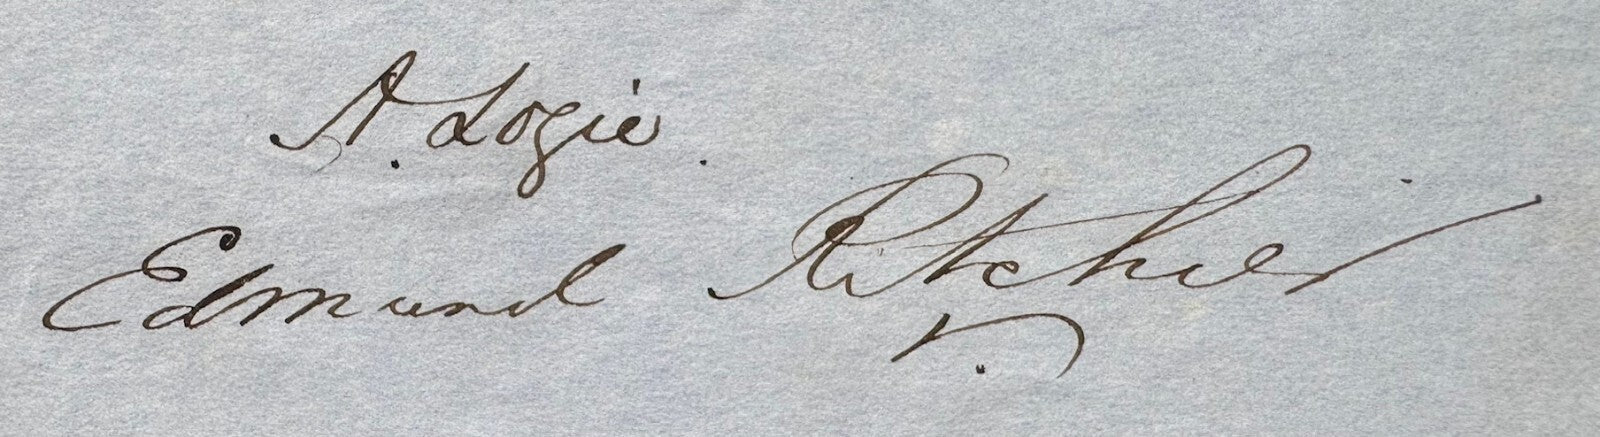 A. Logie.
Edmund Ritchie